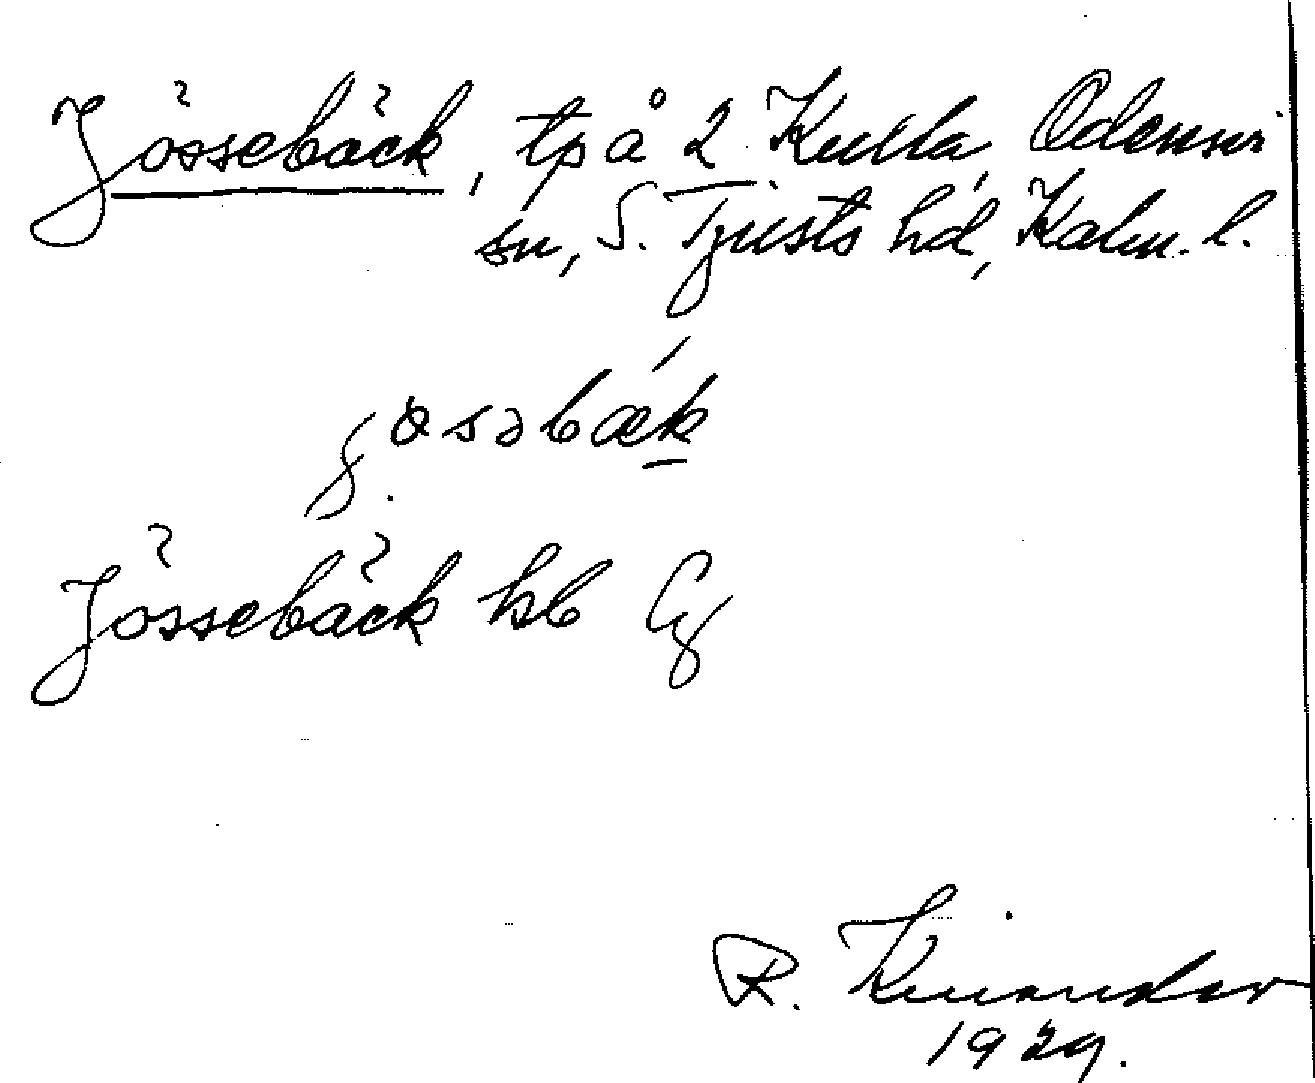 Jössebäck, tp å 2 Kulla, Odensvi
sn, S. Tjusts hd, Kalm. l.
Jössebäck hb
R. Kinander
1929.